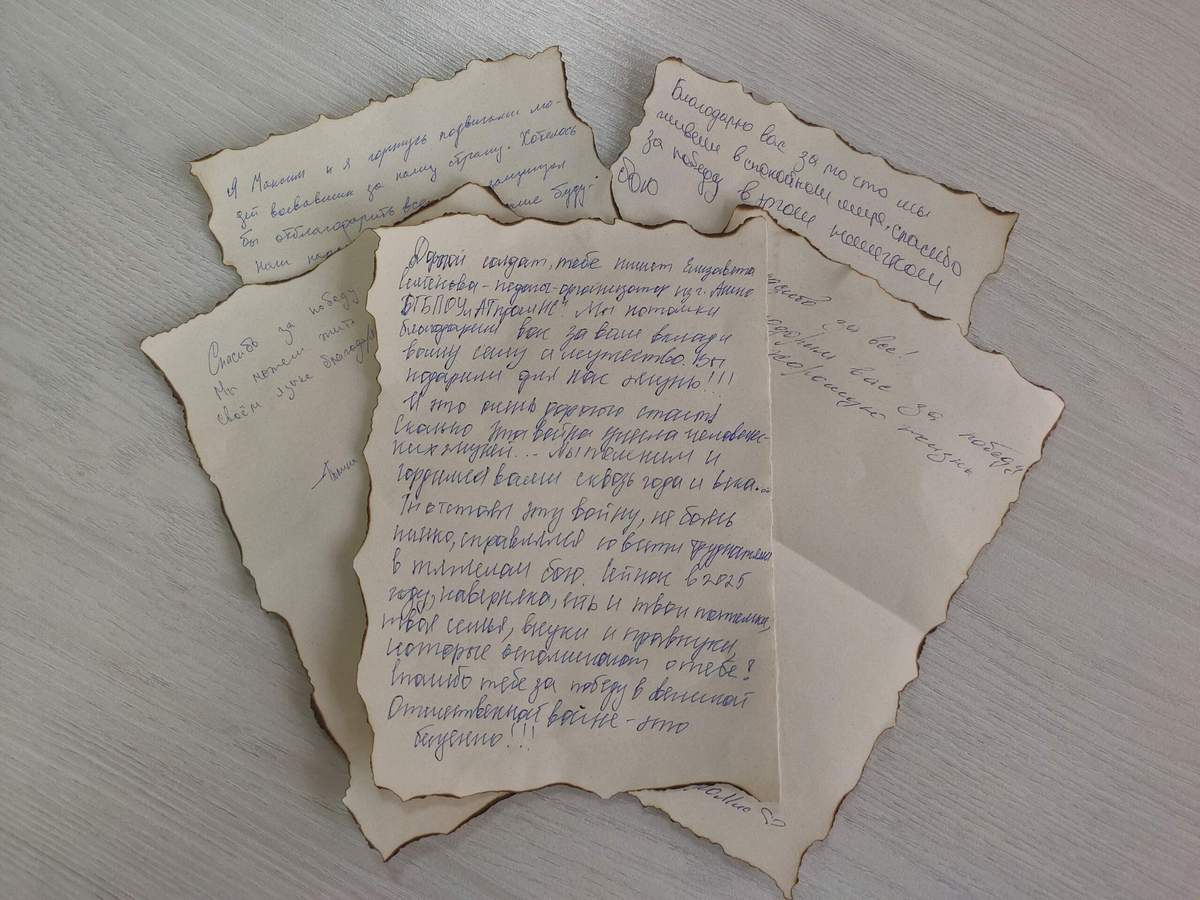 Я Максим и я горжусь подвигами лю-
дей воевавших за нашу страну. Хотелось
бы отблагодарить всех защищал
наши буду-
Благодарю вас за то что мы
живём в спокойном мире, спасибо
за победу в этом нелегком
бою
Спасибо за победу
Мы можем жить
своём языке благодаря
Дорогой солдат, тебе пишет Елизавета
Семёнова - педагог-организатор из г. Анна
ГБПОУ "АТпромНС" Мы потомки
благодарим вас за ваш вклад и
вашу силу и мужество. Вы
подарили для нас жизнь!!!
И это очень дорогого стоит
Сколько эта война унесла человечес-
ких жизней... Мы помним и
гордимся вами сквозь года и века...
Ты отстоял эту войну, не боясь
ничего, справлялся со всеми трудностями
в тяжелом бою. Сейчас в 2025
году, наверняка, есть и твои потомки,
твоя семья, внуки и правнуки,
которые вспоминают о тебе?
Спасибо тебе за победу в Великой
Отечественной войне - это
бесценно!!!
за все!
вас за победу
хорошую жизнь